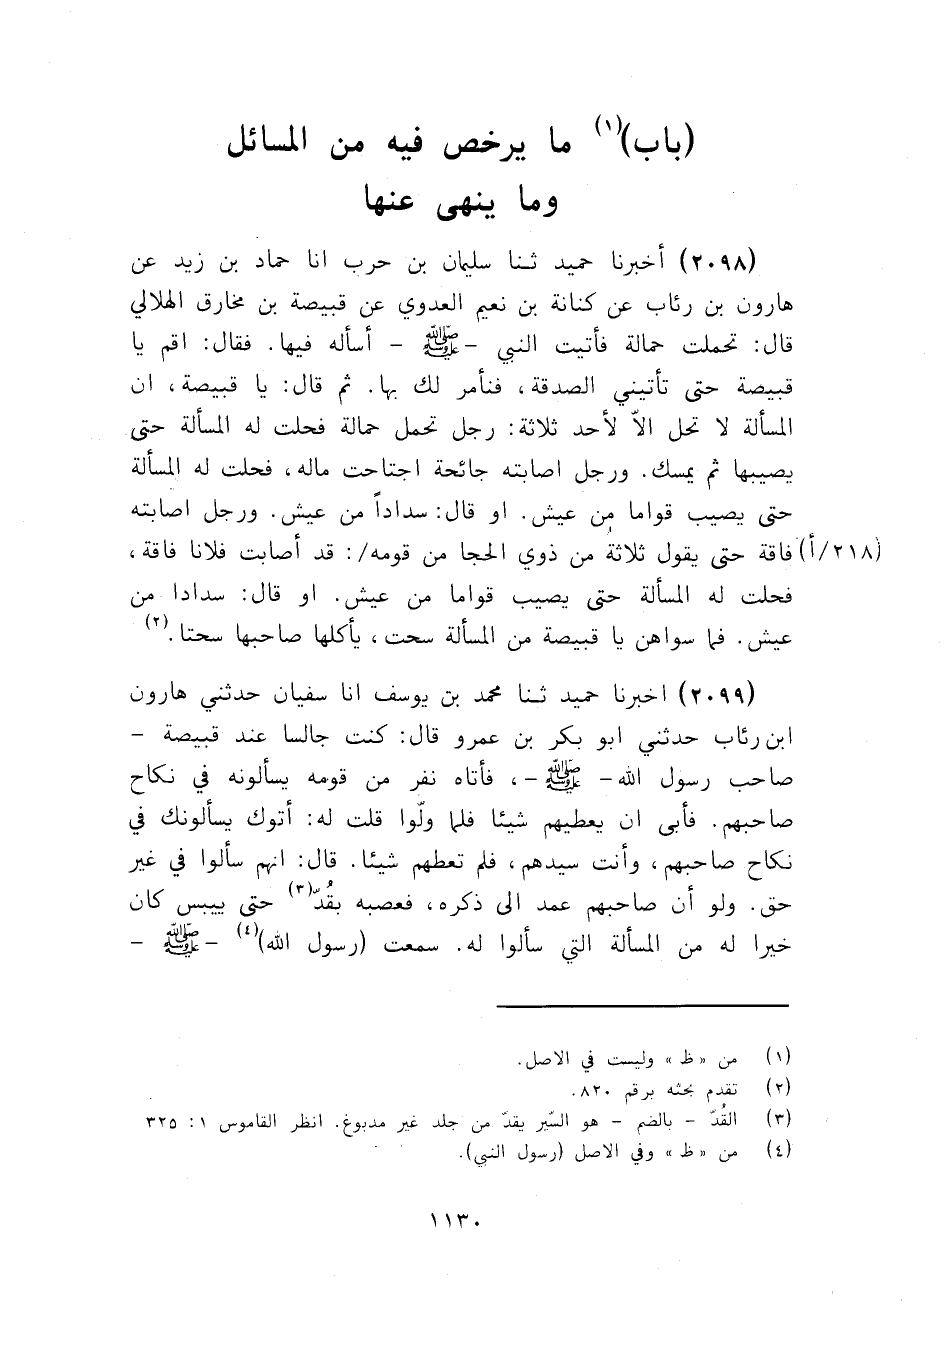 (باب)(١) ما يرخص فيه من المسائل
وما ينهى عنها
(٢٠٩٨) أخبرنا حميد ثنا سليمان بن حرب انا حماد بن زيد عن
هارون بن رئاب عن كنانة بن نعيم العدوي عن قبيصة بن مخارق الهلالي
قال: تحملت حمالة فأتيت النبي - ﷺ - أسأله فيها. فقال: اقم يا
قبيصة حتى تأتيني الصدقة، فنأمر لك بها. ثم قال: يا قبيصة، ان
المسألة لا تحل الاّ لأحد ثلاثة: رجل تحمل حمالة فحلت له المسألة حتى
يصيبها ثم يمسك. ورجل اصابته جائحة اجتاحت ماله، فحلت له المسألة
حتى يصيب قواما مِن عيش. او قال: سداداً من عيش. ورجل اصابته
(٢١٨/أ) فاقة حتى يقول ثلاثة من ذوي الحجا من قومه/: قد أصابت فلانا فاقة،
فحلت له المسألة حتى يصيب قواما من عيش. او قال: سدادا من
عيش. فما سواهن يا قبيصة من المسألة سحت، يأكلها صاحبها سحتا.(٢)
(٢٠٩٩) اخبرنا حميد ثنا محمد بن يوسف انا سفيان حدثني هارون
ابن رئاب حدثني ابو بكر بن عمرو قال: كنت جالسا عند قبيصة -
صاحب رسول الله - ﷺ -، فأتاه نفر من قومه يسألونه في نكاح
صاحبهم. فأبى ان يعطيهم شيئا فلما ولّوا قلت له: أتوك يسألونك في
نكاح صاحبهم، وأنت سيدهم، فلم تعطهم شيئا. قال: انهم سألوا في غير
حق. ولو أن صاحبهم عمد الى ذكره، فعصبه بقُدّ(٣) حتى ييبس كان
خيرا له من المسألة التي سألوا له. سمعت (رسول الله)(٤) - ﷺ -
(١) من « ظ » وليست في الاصل.
(٢) تقدم بحثه برقم ٨٢٠.
(٣) القُدّ - بالضم - هو السّير يقدّ من جلد غير مدبوغ. انظر القاموس ١: ٣٢٥
(٤) من « ظ » وفي الاصل (رسول النبي).
١١٣٠